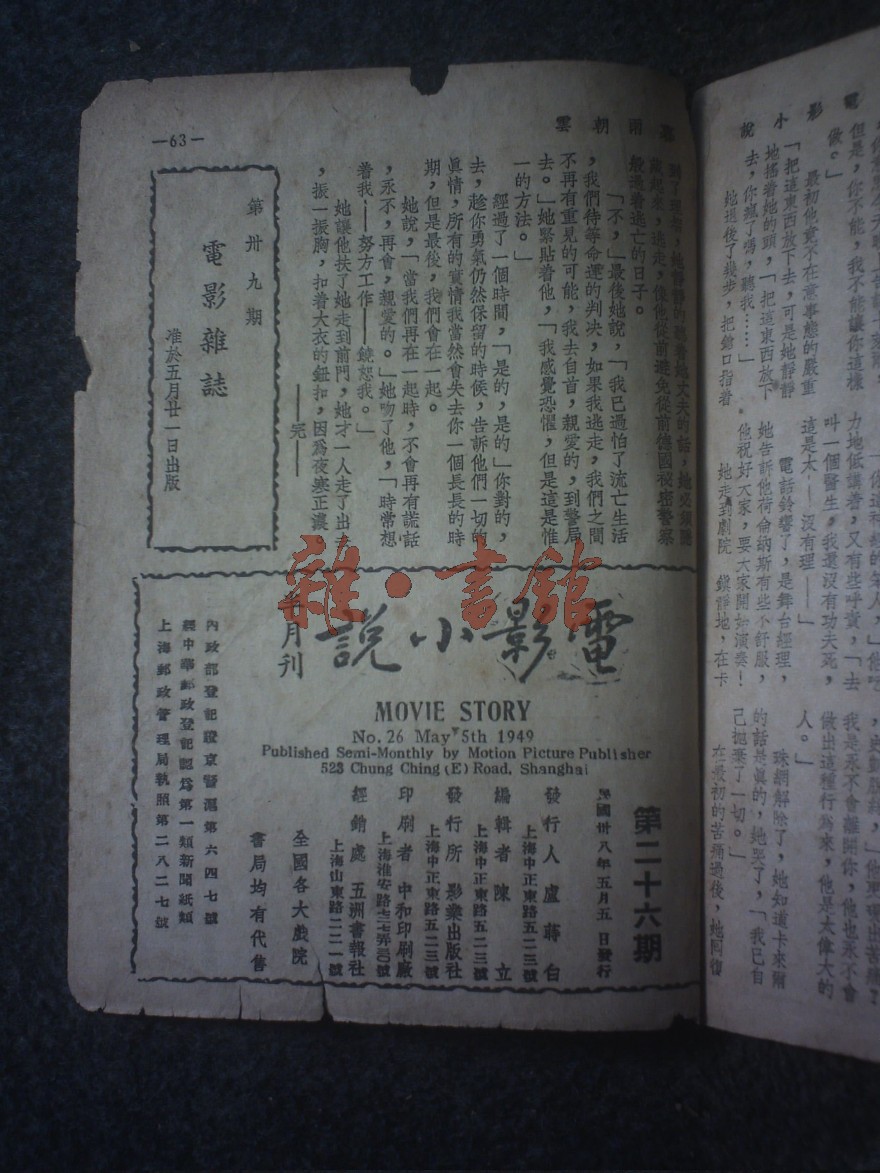 電影小說
但是,你不能,我不能讓你這樣
做。」
最初他竟不在意事態的嚴重
「把這東西放下去,可是她靜靜
地搖着她的頭,「把這東西放下
去,你瘋了嗎,聽我……」
她退後了幾步,把鎗口指着
力地低講着,又有些呼責,「去
叫一個醫生,我還沒有功夫死,
這是太——沒有理——」
電話鈴響了,是舞台經理,
她告訴他荷侖納斯有些不舒服,
他祝好大家,要大家開始演奏!
她走到劇院 鎮靜地,在卡
我是永不會離開你,他也永不會
做出這種行為來,他是太偉大的
人。」
珠網解除了,她知道卡來爾
的話是眞的,她哭了,「我已自
己拋棄了一切。」
在最初的苦痛過後,她回復
暮雨朝雲
般過着逃亡的日子。
「不,」最後她說,「我已過怕了流亡生活
,我們待等命運的判決,如果我逃走,我們之間
不再有重見的可能,我去自首,親愛的,到警局
去。」她緊貼着他,「我感覺恐懼,但是這是惟
一的方法。」
經過了一個時間,「是的,是的」你對的,
去,趁你勇氣仍然保留的時候,告訴他們一切的
眞情,所有的實情我當然會失去你一個長長的時
期,但是最後,我們會在一起。
她說,「當我們再在一起時,不會再有謊話
,永不,再會,親愛的。」她吻了他,「時常想
着我——努力工作——饒恕我。」
她讓他扶了她走到前門,她才一人走了出去
,振一振胸,扣着大衣的鈕扣,因爲夜寒正濃
——完——
—63—
第卅九期
電影雜誌
准於五月廿一日出版
雜·書館
電影小說
半月刊
MOVIE STORY
No. 26 May 5th 1949
Published Semi-Monthly by Motion Picture Publisher
523 Chung Ching (E) Road, Shanghai
第二十六期
民國卅八年五月五日發行
發行人 盧蒔白
上海中正東路五二三號
編輯者 陳立
上海中正東路五二三號
發行所 影業出版社
上海中正東路五二三號
印刷者 中和印刷廠
經銷處 五洲書報社
上海山東路二二一號
全國各大戲院
書局均有代售
內政部登記證京警滬第六四七號
經中華郵政登記認爲第一類新聞紙類
上海郵政管理局執照第二八二七號